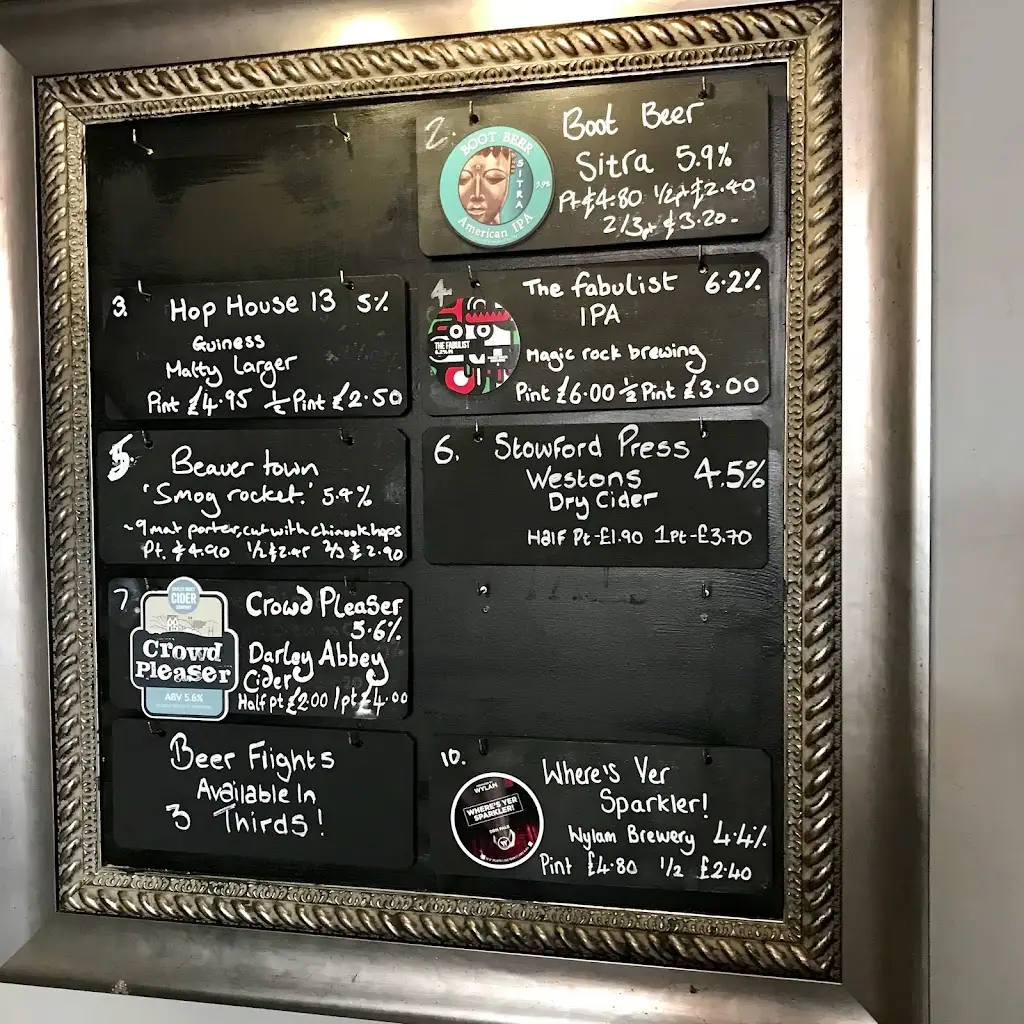 2.
BOOT BEER
SITRA
5.9%
American IPA
Boot Beer
Sitra 5.9%
Pt £4.80 1/2pt £2.40
2/3pt £3.20-
3.
Hop House 13 5%
Guiness
Malty Larger
Pint £4.95 ½ Pint £2.50
4.
THE FABULIST
6.2%
The fabulist 6.2%
IPA
Magic rock brewing
Pint £6.00 ½ Pint £3.00
5.
Beaver town
'Smog rocket.' 5.4%
~9 malt porter, cut with chinook hops
Pt. £4.90 1/2 £2.45 2/3 £2.90
6.
Stowford Press
Westons 4.5%
Dry Cider
Half Pt-£1.90 1Pt-£3.70
7.
CIDER
Crowd
Pleaser
ABV 5.6%
Crowd Pleaser
5.6%
Darley Abbey
Cider
Half pt £2.00 1pt £4.00
Beer Flights
Available In
3 Thirds!
10.
WYLAM
WHERE'S YER
SPARKLER!
Where's Yer
Sparkler!
Wylam Brewery 4.4%
Pint £4.80 1/2 £2.40